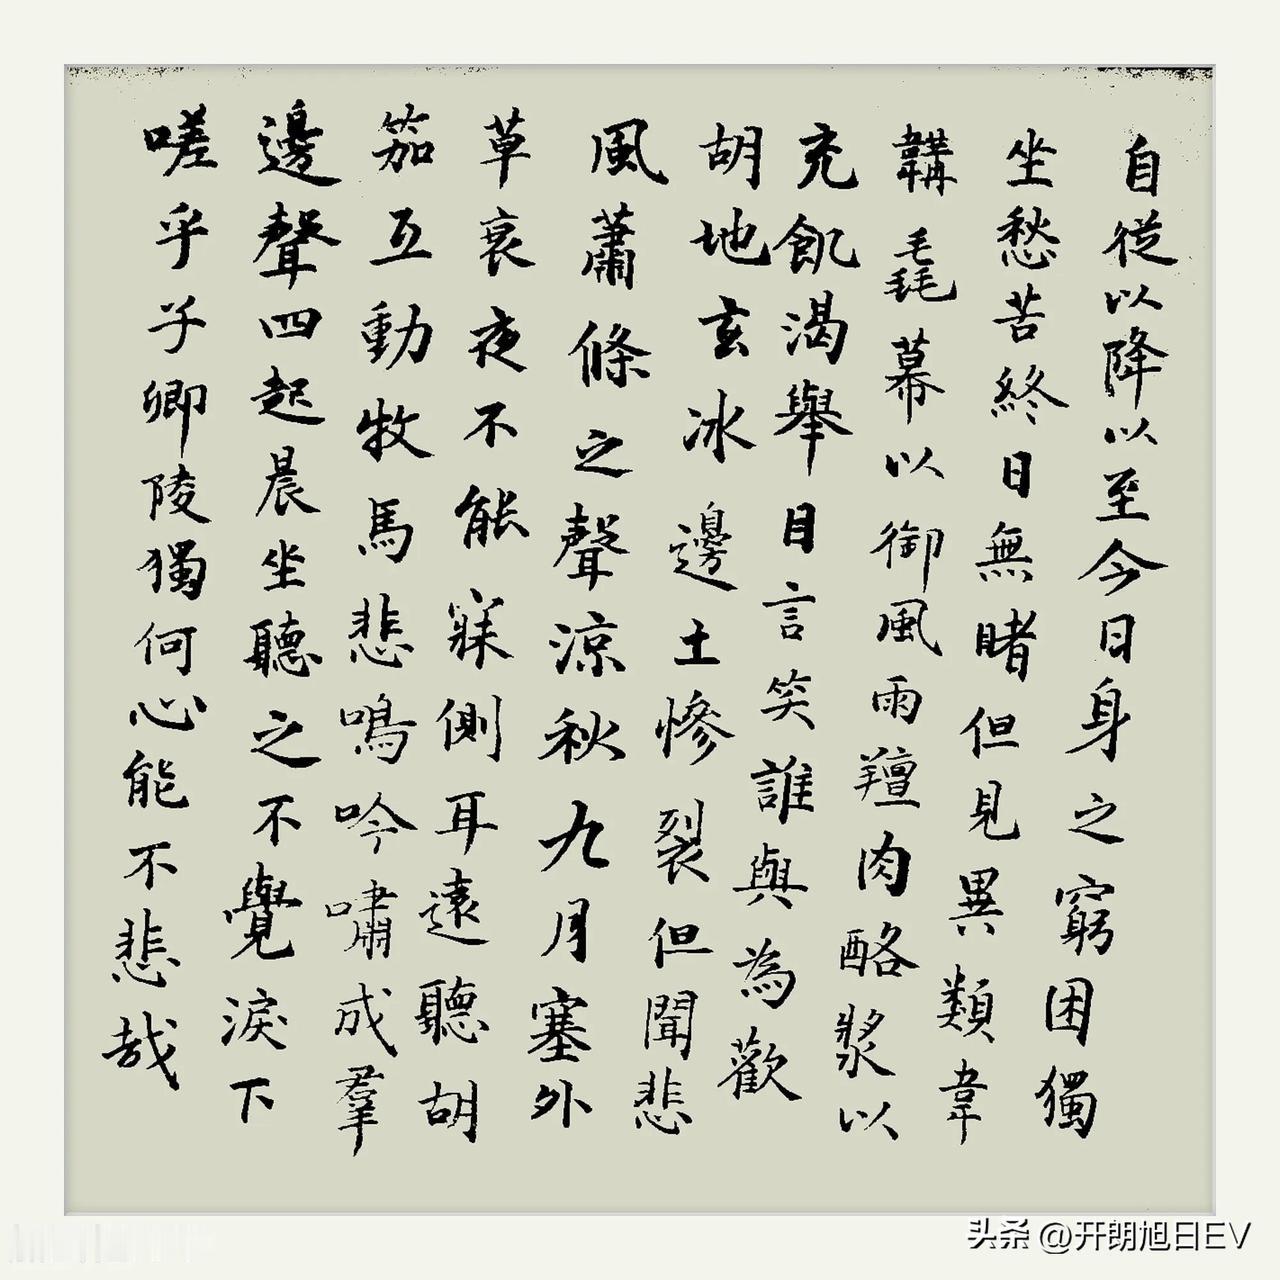 自從以降以至今日身之窮困獨
坐愁苦終日無睹但見異類韋
韝毳幕以御風雨羶肉酪漿以
充飢渴舉目言笑誰與為歡
胡地玄冰邊土慘裂但聞悲
風蕭條之聲涼秋九月塞外
草衰夜不能寐側耳遠聽胡
笳互動牧馬悲鳴吟嘯成羣
邊聲四起晨坐聽之不覺淚下
嗟乎子卿陵獨何心能不悲哉
头条 @开朗旭日EV